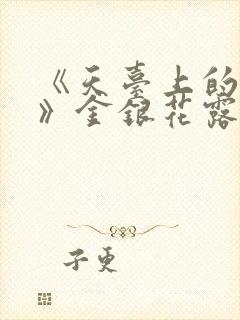 《天臺上的
》金銀花露
子更